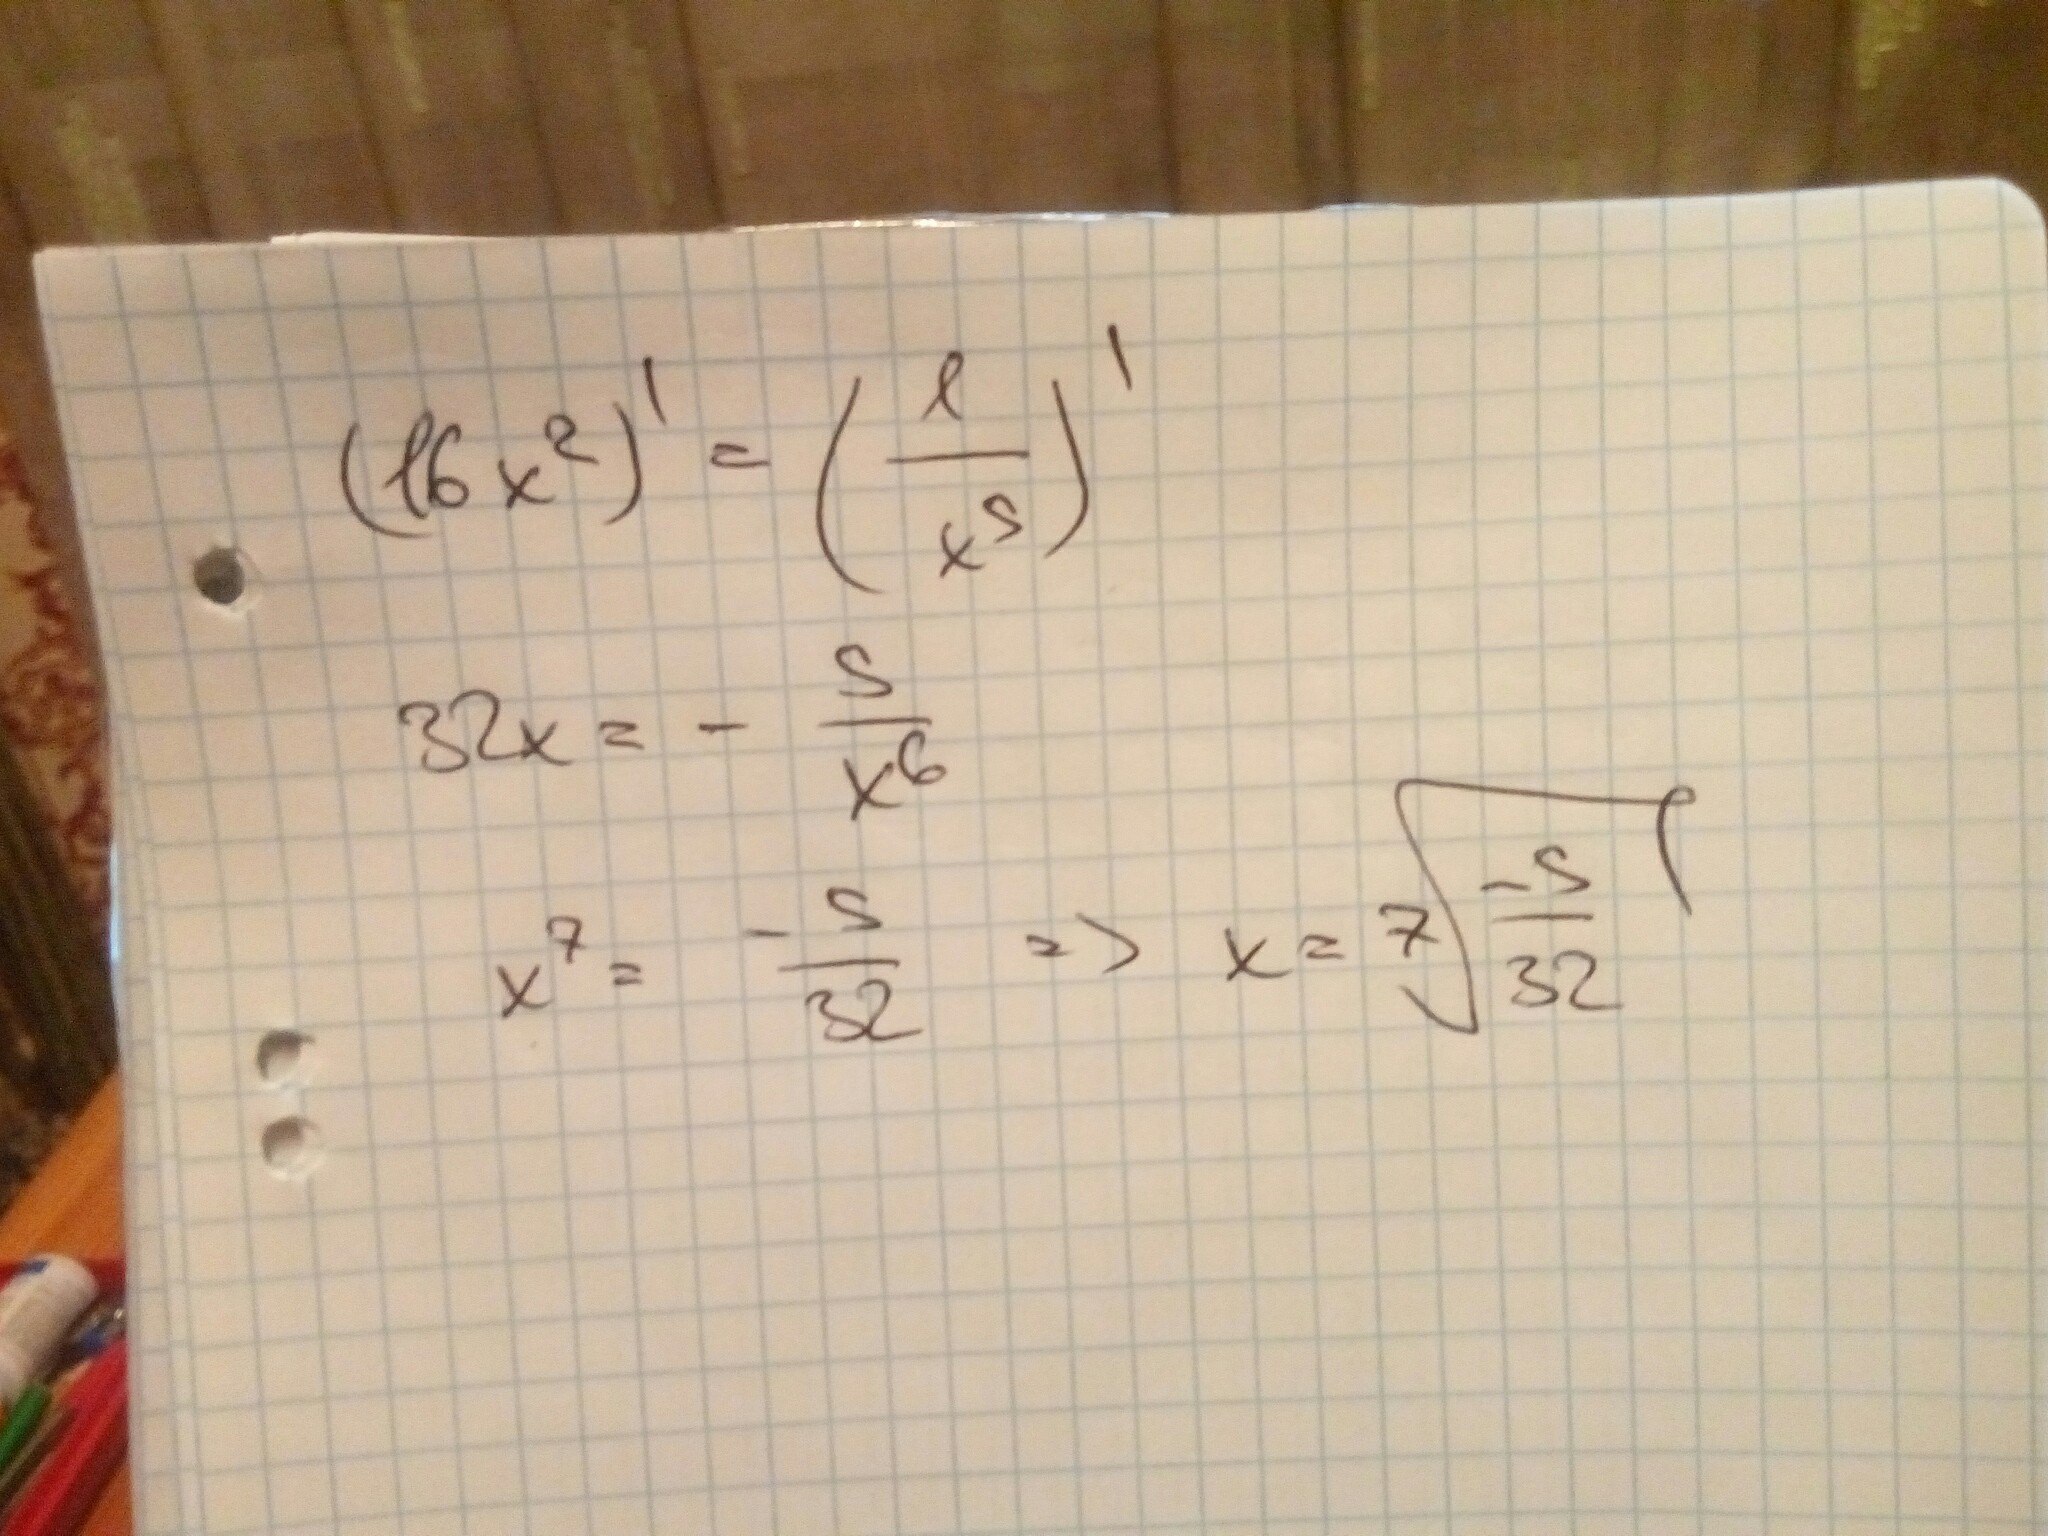 (16x²)' = (1/x⁵)'
32x = - 5/x⁶
x⁷ = -5/32 => x = ⁷√(-5/32)